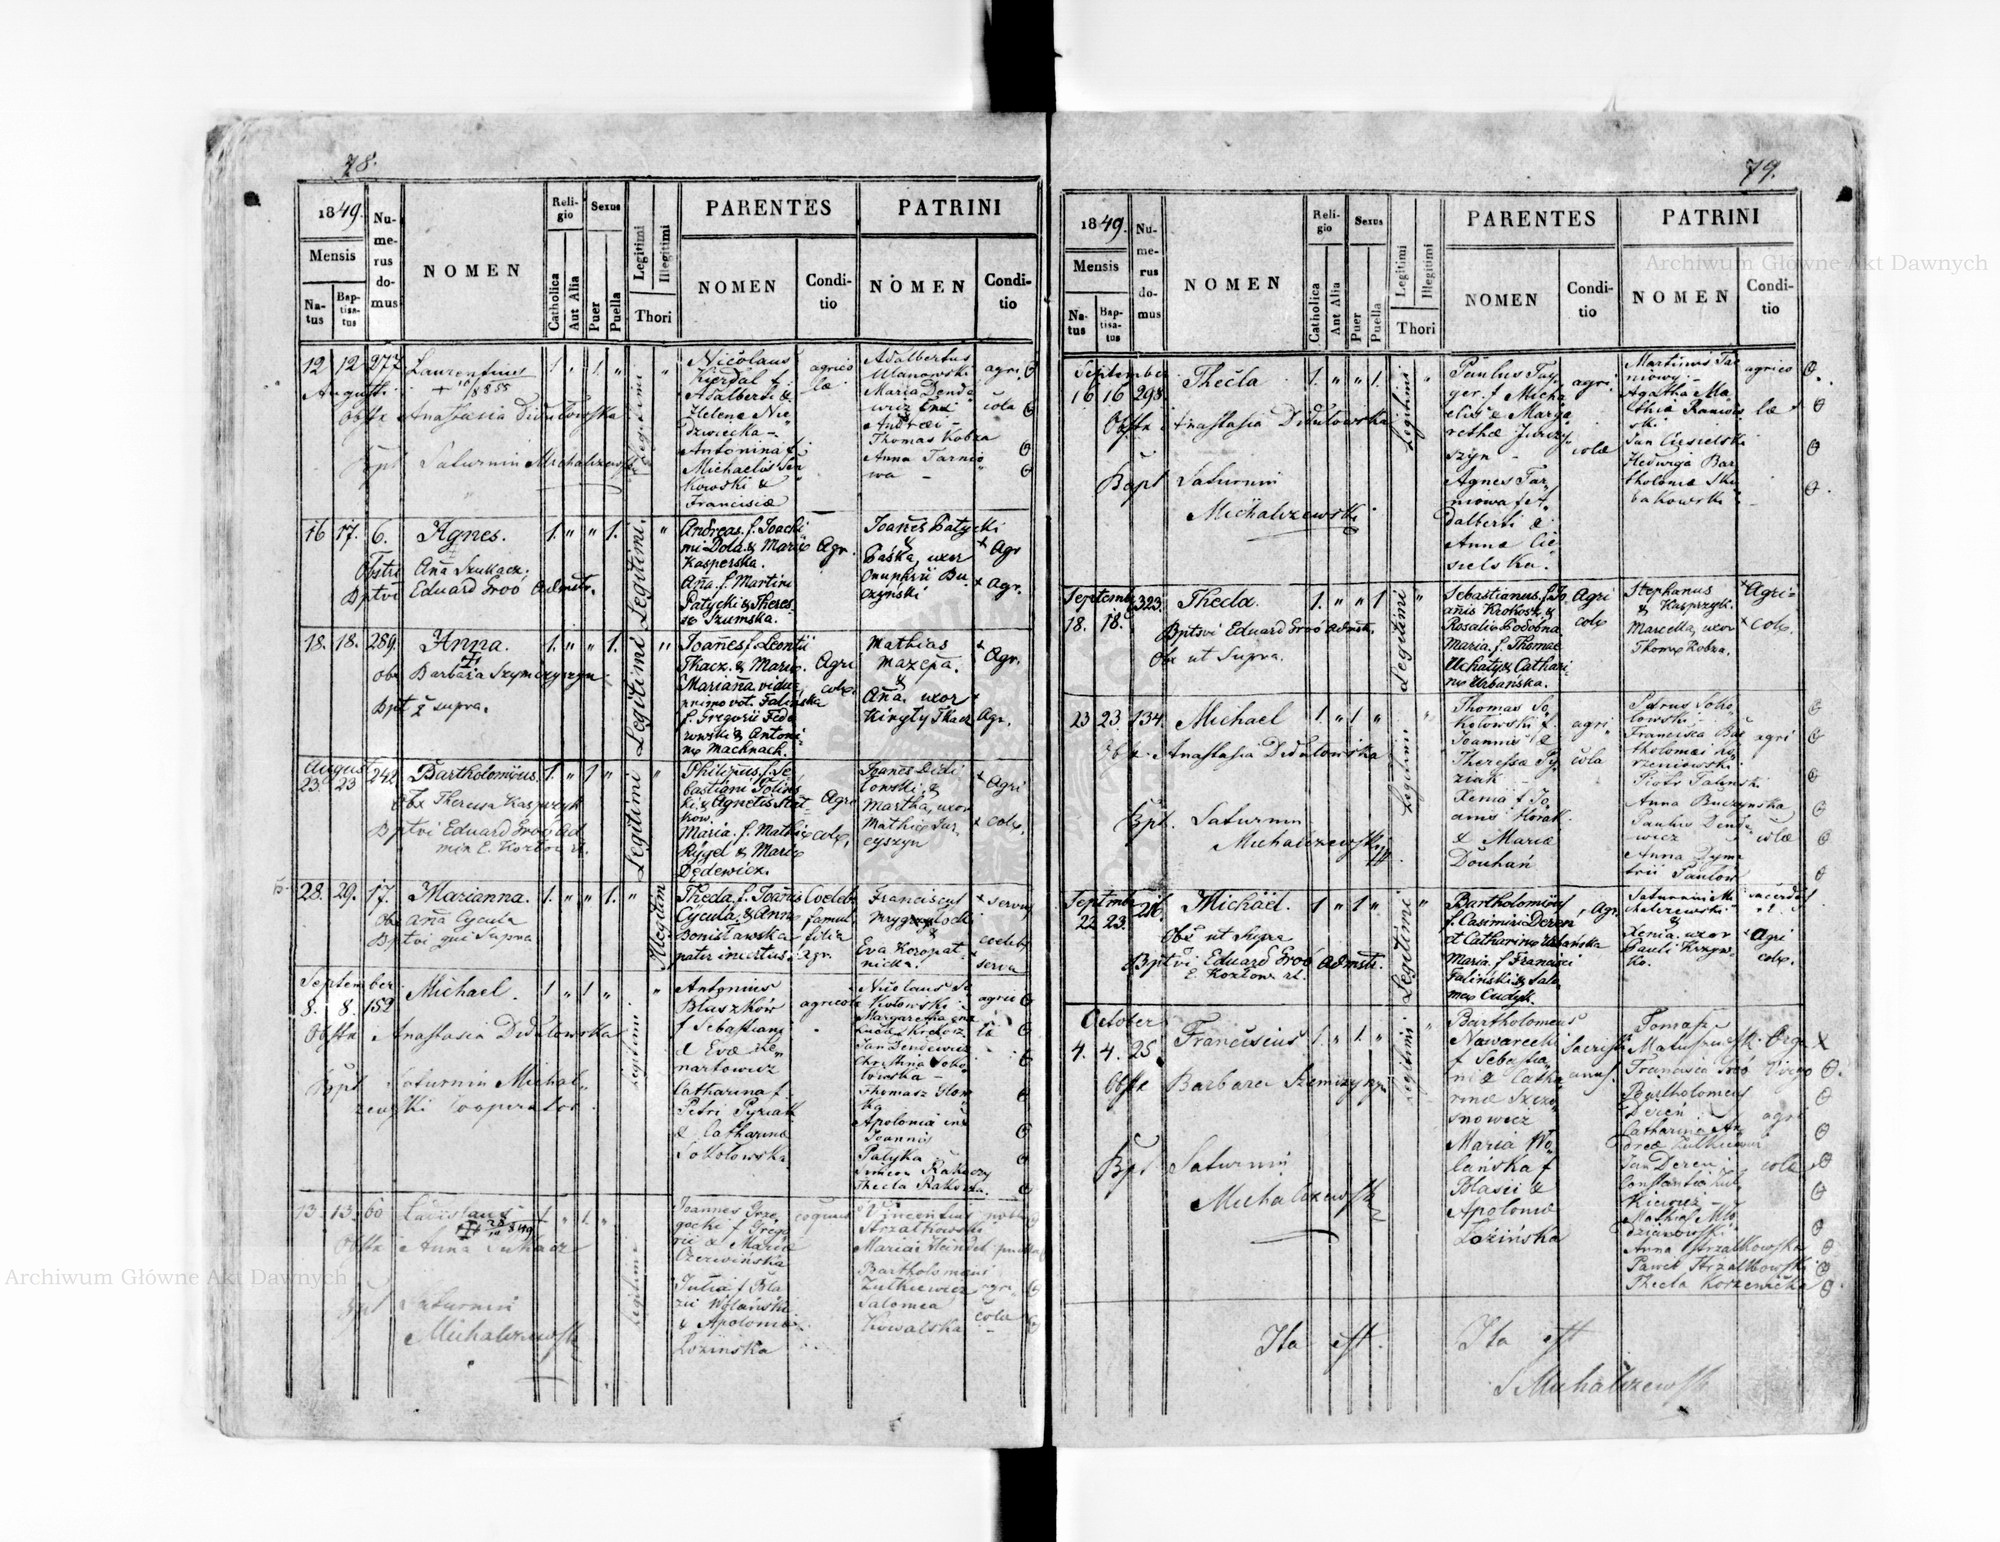 78.
1849.
Mensis
Natus
Baptisatus
Numerus domus
NOMEN
Religio
Catholica
Aut Alia
Sexus
Puer
Puella
Legitimi
Illegitimi
Thori
PARENTES
NOMEN
Conditio
PATRINI
NOMEN
Conditio
12 12 277 Laurentius 1. " 1. " "
Augusti
Obstx Anastasia Didułowska
Bpt Saturnin Michalczewski
Legitimi
Nicolaus
f.
Adalberti &
Helena Nie
dzwiecka -
Antonina f.
Michaelis
kowski &
Francisiæ
agrico
læ
Adalbertus
Ulanowski
Maria Dende
wicz
Andreæi -
Thomas Kobza
Anna Tarnio
wa -
agri
cola
16 17. 6. Agnes. 1. " " 1. "
Obstri Aña Szukacz.
Bptvi Eduard Groó Admstr.
Legitimi.
Andreas. f. Joachi
mi Dola. & Mariæ
Kasperska.
Aña. f. Martini
Patycki & Theres
æ Szumska.
Agr.
Joañes Patycki
&
Paśka, uxor
Onuphrii Bu
czyński
+ Agr
+ Agr.
18. 18. 289. Anna. 1. " " 1. "
Obx Barbara Szymczyszyn
Bpt ż supra.
Legitimi
Joañes f. Leontii
Tkacz. & Mariæ.
Mariaña vidua
primo vot. Falińska
f. Gregorii Fedo
rowski & Antoni
næ Machnach.
Agri
colæ.
Mathias
Mazepa.
&
Aña. uxor
Kiryły Tkacz
+
Agr.
+
Agr.
August
23. 23 242 Bartholomæus. 1. " 1 " "
Obx Theresa Kasprzyk
Bptvi Eduard Groó Ad
min E. Kozłow rt.
Legitimi
Philipus. f. Se
bastiani Golins
ki. & Agnetis Stat
kow.
Maria. f. Mathiæ
Rygel & Mariæ
Dędewicz.
Agri
colæ.
Joañes Didi
łowski, &
Martha, uxor
Mathiæ Jur
cyszyn
+ Agri
+ colæ.
28. 29. 17. Marianna. 1. " " 1. "
Obx aña Cycula
Bptvi qui Supra
Illegitim
Thecla. f. Joañis
Cycula, & Annæ
Bonisławska
pater incertus.
Coeleb.
famul
filia
Agr.
Franciscus
Mrygłocki
&
Eva Koropat
nicka.
+ servus
coelebs
+ serva
September
8. 8. 152 Michael. 1 " 1 " "
Obstx Anastasia Didułowska
Bpt Saturnin Michal
czewski Cooperator.
Legitimi
Antonius
Błaszków
f Sebastiani
& Evæ Le
nartowicz
Catharina f.
Petri Pyziak
& Catharinæ
Sokołowska
agricola
Nicolaus So
kołowski
Margaretha
Jan Dendewicz
Christina Soko
łowska -
Thomasz
Apolonia
Joannis
Patyka
Simeon Rakoczy
Thecla Rakocza.
agrico
la
13. 13. 60 Ladislaus 1. " 1. "
28/10 849
Obstx Anna Szukacz
Bpt Saturnin
Michalczewski
legitimi
Joannes Grze
gocki f Grego
rii & Maria
Czerwińska
Julia f Bla
zii Wolański
& Apolonia
Łozinska
coquus
Vincentius
Strzałkowski
Maria
Bartholomæus
Zutkiewicz
Salomea
Kowalska
nobi
agri
cola
79.
1849.
Mensis
Natus
Baptisatus
Numerus domus
NOMEN
Religio
Catholica
Ant Alia
Sexus
Puer
Puella
Legitimi
Illegitimi
Thori
PARENTES
NOMEN
Conditio
PATRINI
NOMEN
Conditio
September
16 16 298. Thecla 1. " " 1. "
Obstx Anastasia Didułowska
Bapt Saturnin
Michalczewski
Legitimi
Paulus Tay
ger. f Micha
elis & Marga
rethæ Jurczy
szyn -
Agnes Tar
niowa f A
dalberti &
Anna Cie
sielska.
agri
colæ
Martinus Tar
niowy -
Agatha Ma
thiæ
ski
Jan Ciesielski
Hedwiga Bar
tholomæ
bakowski
agrico
læ
Septembr
18. 18. 323. Thecla. 1. " " 1 "
Bptsvi Eduard Groó Admstr.
Obx ut Supra.
Legitimi
Sebastianus. f. Jo
añis Krokosz, &
Rosalia Podobna.
Maria. f. Thomæ
Uchaty & Cathari
næ Urbańska.
Agri
colæ
Stephanus
& Kasprzyk.
Marcella, uxor
Thomæ Kobza.
+ Agri=
+ colæ.
23 23. 134. Michael 1. " 1 " "
Obx. Anastasia Didułowska
Bpt. Saturnin
Michalczewski
Legitimi
Thomas So
kołowski f.
Joannis &
Theressæ Py
ziak -
Xenia f. Jo
anis Horak
& Mariæ
Douhań
agri
cola
Petrus Soko
łowski -
Francisca Bar
tholomæi Ko
rzeniowski
Piotr Falinski
Anna Buczynska
Paulus Dende
wicz
Anna Dymi
trii Pawłow
agri
colæ
Septmbr
22 23. 216. Michaël. 1 " 1 " "
Obx ut Supra
Bptvi Eduard Groó Admstr.
E. Kozłow rt.
Legitimi
Bartholomæus
f. Casimiri Deren
et Catharinæ Urbańska
Maria. f. Francisci
Faliński & Salo
meæ Cudyk.
Agr.
Saturnin Mi
chalczewski
&
Xenia. uxor
Pauli Krzyw
ko.
sacerdos
+ Agri
colæ.
October
4. 4. 25. Franciscus 1. " 1. " "
Obstx Barbara Szemczyszyn
Bpt Saturnin
Michalczewski
Legitimi
Bartholomeus
Nawarecki
f Sebastia
ni & Catha
rinæ Szcze
snowicz
Maria Wo
lańska f
Blasii &
Apoloniæ
Łozińska
Sacristi
anus.
Tomasz
Matuszewski
Francisca Groó
Bartholomeus
Dereń
Catharina An
dreæ Zutkiewicz
Jan Deren
Constantia Zut
kiewicz -
Mathias Mło
dzianowski
Anna Strzałkowska
Paweł Strzałkowski
Thecla Korzenicka
Orga
Virgo
agri
cola
Ita est.
Ita est
S Michalczewski
Archiwum Główne Akt Dawnych
Archiwum Główne Akt Dawnych